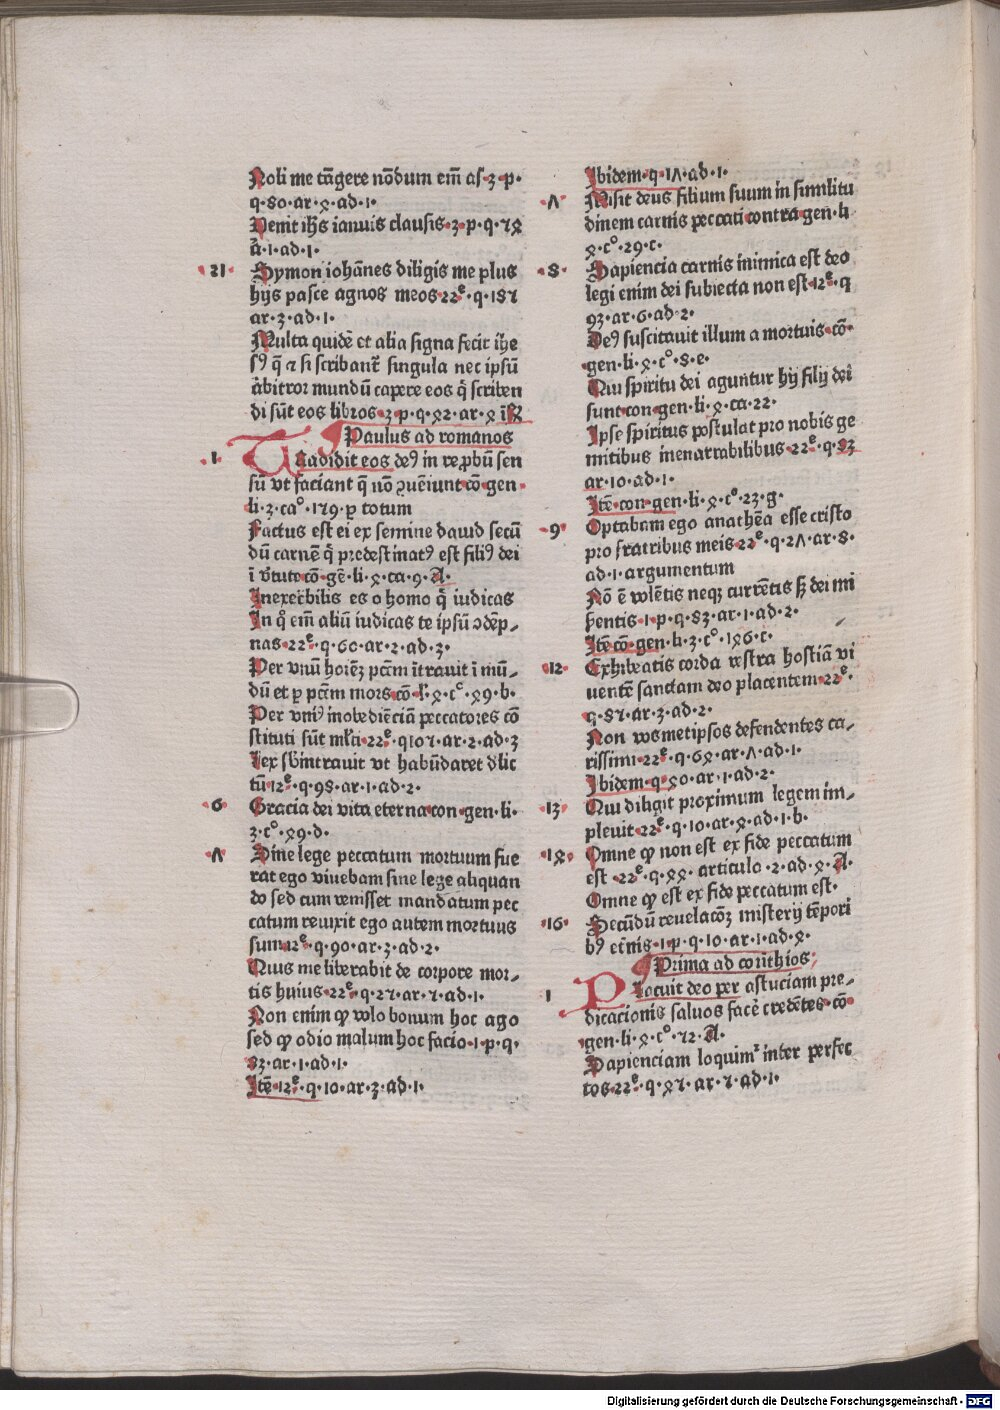 Noli me tāgere nōdum em̄ as·3·p·
q·80·ar·4·ad·1·
Venit ih̄s ianuis clausis·3·p·q·54
ā·1·ad·1·
·21· Symon iohānes diligis me plus
hijs pasce agnos meos·22ͤ·q·185
ar·3·ad·1·
Multa quidē et alia signa fecit ih̄e
sꝰ q̄ ⁊ si scribant᷑ singula nec ipsū
arbitror mundū capere eos q̄ scriben
di sūt eos libros·3·p·q·42·ar·4·
Paulus ad romanos
·1· Tradidit eos deꝰ in reꝓbū sen
sū vt faciant q̄ nō ꝯueīunt cō·gen·
li·3·ca°·179·ꝑ totum
Factus est ei ex semine dauid secū
dū carnē q̄ predestinatꝰ est filiꝰ dei
ī v̄tute cō·gē·li·4·ca·9·A·
Inexc̄bilis es o homo q̄ iudicas
In q̊ em̄ aliū iudicas te ipsū ꝯdēp-
nas·22ͤ·q·60·ar·2·ad·3·
Per vnū hoīeʒ pc̄m ītrauit ī mū-
dū et ꝑ pc̄m mors·cō·li·4·c°·49·b·
Per vniꝰ inobediēciā peccatores cō
stituti sūt ml̄ti·22ͤ·q105·ar·2·ad·3
Lex sb̄intrauit vt habūdaret d̄lic
tū·12ͤ·q·98·ar·1·ad·2·
·6· Gracia dei vita eterna con·gen·li·
3·c°·49·d·
·Λ· Sine lege peccatum mortuum fue
rat ego viuebam sine lege aliquan
do sed cum venisset mandatum pec
catum reuixit ego autem mortuus
sum·12ͤ·q·90·ar·3·ad·2·
Quis me liberabit de corpore mor-
tis huius·22ͤ·q·25·ar·5·ad·1·
Non enim ꝙ volo bonum hoc ago
sed ꝙ odio malum hoc facio·1·p·q·
83·ar·1·ad·1·
Itē·12ͤ·q·10·ar·3·ad·1·
Ibidem·q·1Λ·ad·1·
·Λ· Misit deus filium suum in similitu
dinem carnis peccati contra gen·li
4·c°·29·c·
·8· Sapiencia carnis inimica est deo
legi enim dei subiecta non est·12ͤ·q
93·ar·6·ad·2·
Deꝰ suscitauit illum a mortuis·cō·
gen·li·4·c°·8·e·
Qui spiritu dei aguntur hij filij dei
sunt con·gen·li·4·ca·22·
Ipse spiritus postulat pro nobis ge
mitibus inenarrabilibus·22ͤ·q·83
ar·10·ad·1·
Itē con·gen·li·4·c°·23·g·
·9· Optabam ego anathēa esse cristo
pro fratribus meis·22ͤ·q·2Λ·ar·8·
ad·1·argumentum
Nō ē volētis neqꝫ currētis sꝫ dei mi
serentis·1·p·q·83·ar·1·ad·2·
Itē cō·gen·li·3·c°·146·c·
·12· Exhibeatis corda vestra hostiā vi
uentē sanctam deo placentem·22ͤ·
q·85·ar·3·ad·2·
Non vosmetipsos defendentes ca-
rissimi·22ͤ·q·64·ar·Λ·ad·1·
Ibidem·q·40·ar·1·ad·2·
·13· Qui diligit proximum legem im-
pleuit·22ͤ·q·10·ar·4·ad·1·b·
·14· Omne ꝙ non est ex fide peccatum
est·22ͤ·q·44·articulo·2·ad·4·A·
Omne ꝙ est ex fide peccatum est·
·16· Secūdū reuelacōꝫ misterij tēpori
bꝰ et̄nis·1·p·q·10·ar·1·ad·4·
Prima ad corīthios
1 Placuit deo per astuciam pre-
dicacionis saluos facē credētes·cō·
gen·li·4·c°·72·A·
Sapienciam loquim᷑ inter perfec
tos·22ͤ·q·45·ar·5·ad·1·
Digitalisierung gefördert durch die Deutsche Forschungsgemeinschaft - DFG